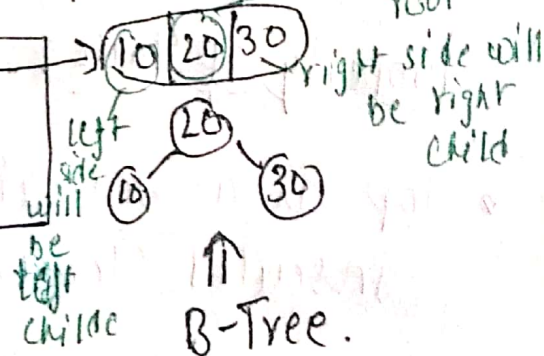 root
10 20 30
right side will
be right
child
left
side
will
be
left
childe
20
10 30
B-Tree.